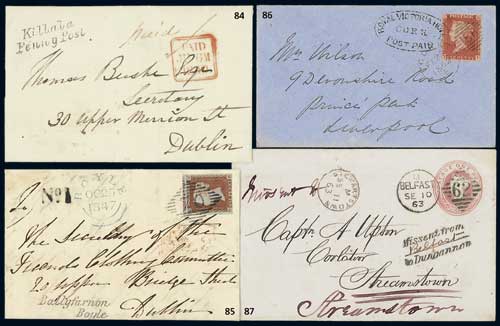 84
Killala
Penny Post
Paid 1
PAID
Thomas Beshe Esqr
Secretary
30 Upper Merrion St
Dublin
86
ROYAL VICTORIA
POST PAID
Mrs Wilson
9 Devonshire Road
Princes Park
Liverpool
No. 1
OC 25
1847
To
The Secretary of the
Friends Clothing Committee
20 Upper Bridge Street
Dublin
Ballyfarnon
Boyle
85
Missent
STREAMSTOWN
63
BELFAST
SE 10
63
62
Missent from
Belfast
to Dungannon
Captn A Upton
Coolatore
Streamstown
Streamstown
87